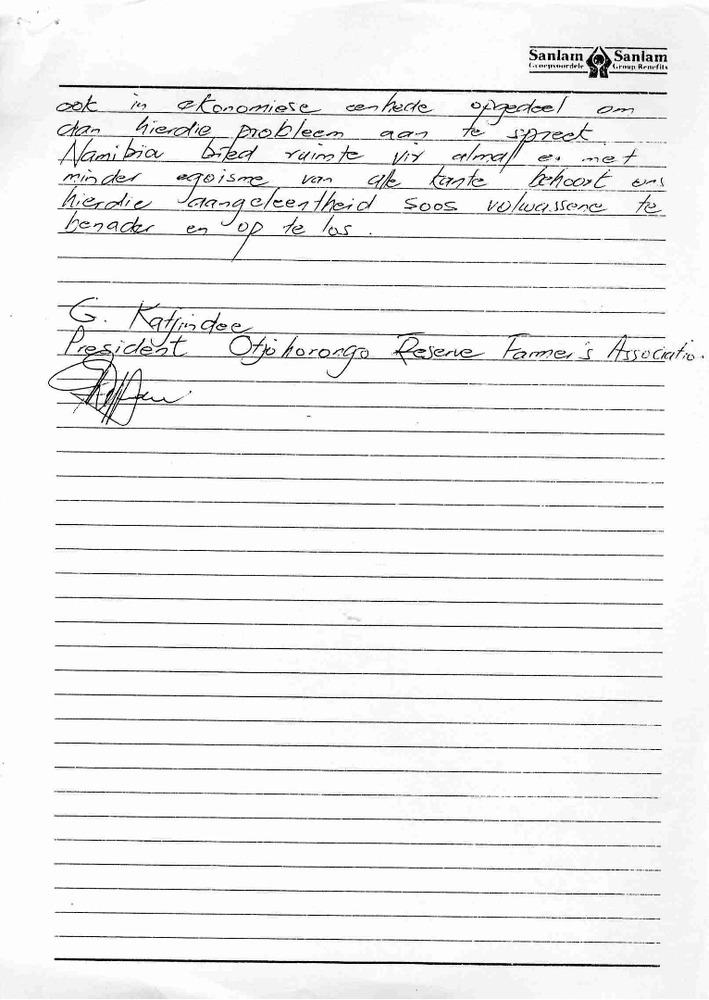 Sanlam Sanlam
Groepsvoordele Group Benefits
ook in ekonomiese eenhede opgedeel om
dan hierdie probleem aan te spreek.
Namibia bied ruimte vir almal en met
minder egoisme van alle kante behoort ons
hierdie aangeleentheid soos volwassene te
benader en op te los.
G. Katjindee
President Otjohorongo Reserve Farmer's Associatio.